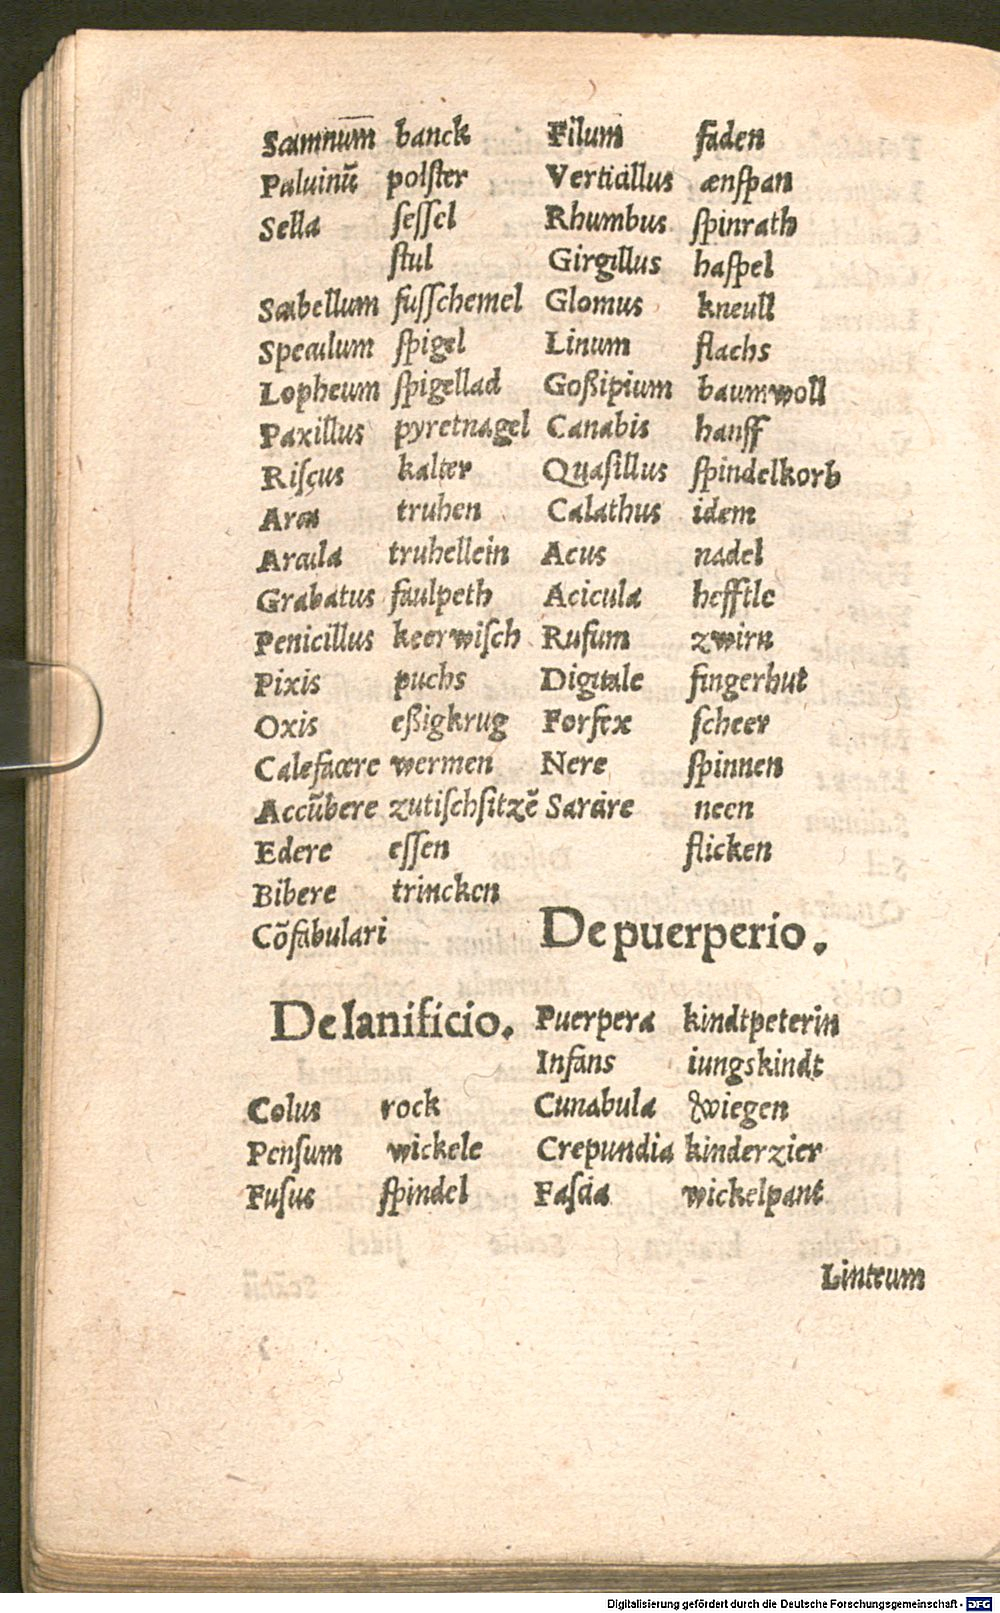 Scamnum̄ banck
Puluinū polſter
Sella ſeſſel
ſtul
Scabellum fuſſchemel
Speculum ſpigel
Lopheum ſpigellad
Paxillus pyretnagel
Riſcus kalter
Arca truhen
Arcula truhellein
Grabatus faulpeth
Penicillus keerwiſch
Pixis puchs
Oxis eßigkrug
Calefacere wermen
Accūbere zutiſchſitzē
Edere eſſen
Bibere trincken
Cōfabulari
De lanificio.
Colus rock
Penſum wickele
Fuſus ſpindel
Filum faden
Verticillus ænſpan
Rhumbus ſpinrath
Girgillus haſpel
Glomus kneull
Linum flachs
Goßipium baumwoll
Canabis hanff
Quaſillus ſpindelkorb
Calathus idem
Acus nadel
Acicula hefftle
Rufum zwirn
Digitale fingerhut
Forfex ſcheer
Nere ſpinnen
Sarcire neen
flicken
De puerperio.
Puerpera kindtpeterin
Infans iungskindt
Cunabula wiegen
Crepundia kinderzier
Faſcia wickelpant
Linteum
Digitalisierung gefördert durch die Deutsche Forschungsgemeinschaft - DFG